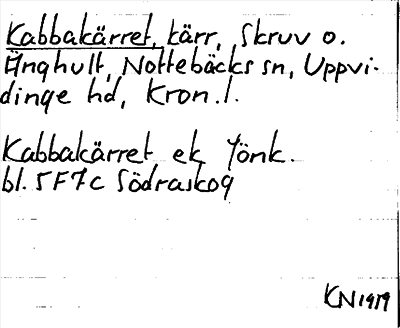 Kabbakärret, kärr, Skruv o.
Änghult, Nottebäcks sn, Uppvi-
dinge hd, Kron. l.
Kabbakärret ek Jönk.
bl. 5F7c Södraskog
KN1919